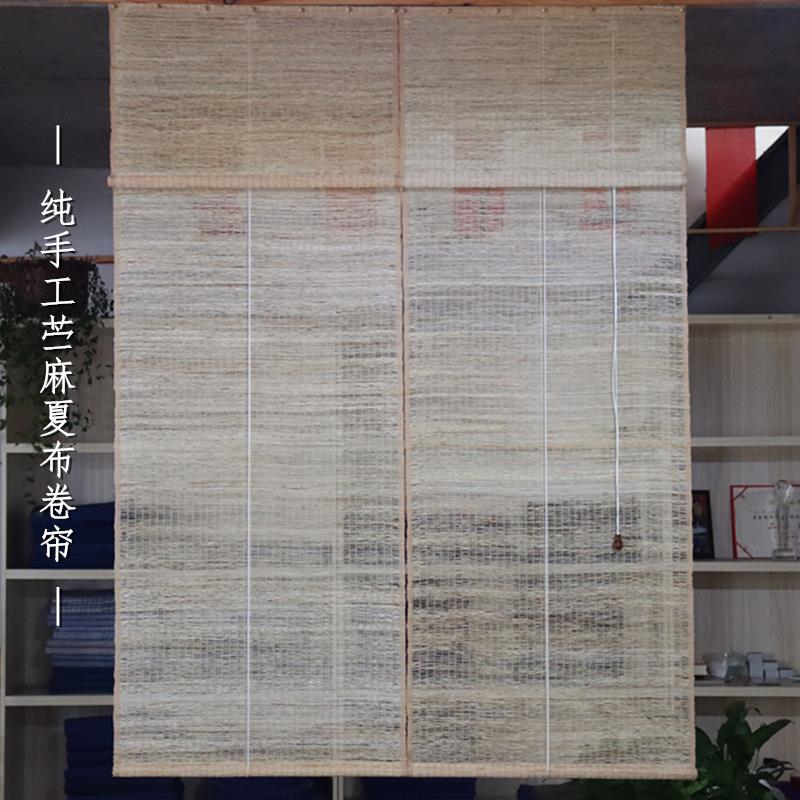 纯手工苎麻夏布卷帘